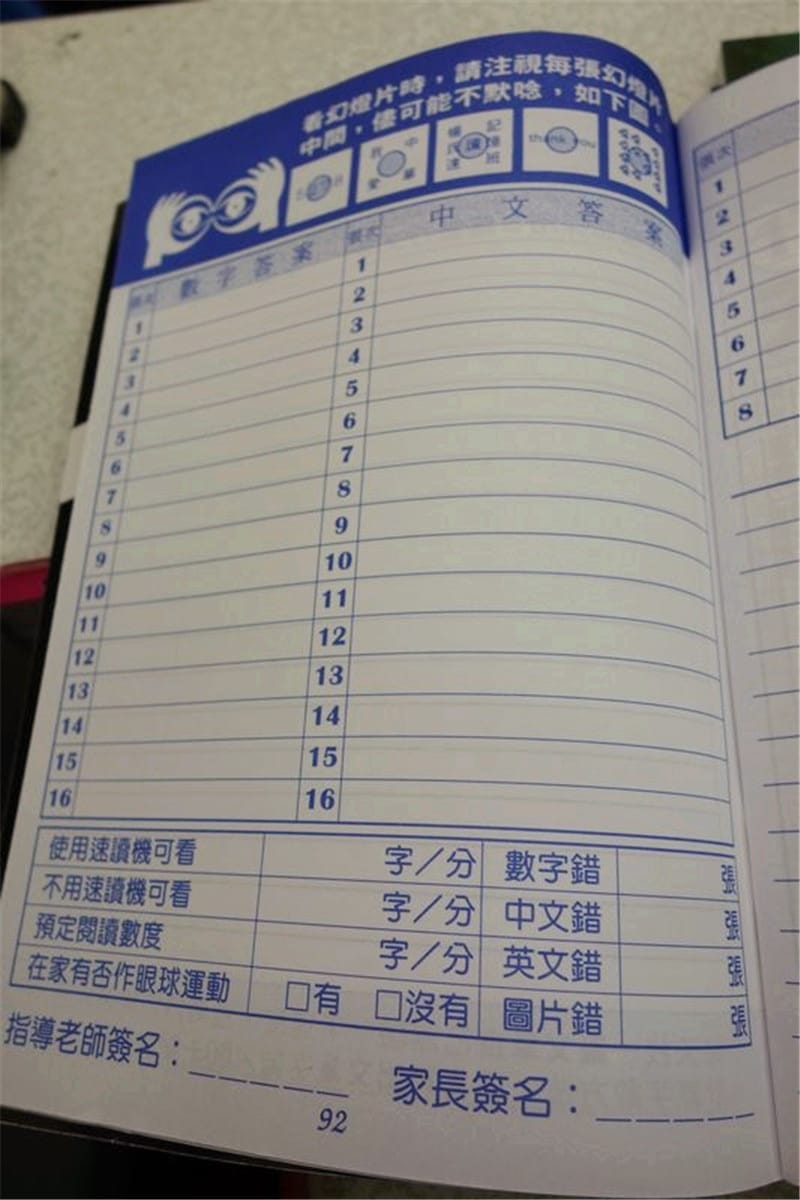 看幻燈片時，請注視每張幻燈片
中間，儘可能不默唸，如下圖。
我 中
愛 華
楊 記
氏 讀 憶
速 班
thank you
張次 數字答案 張次 中文答案
1 1
2 2
3 3
4 4
5 5
6 6
7 7
8 8
9 9
10 10
11 11
12 12
13 13
14 14
15 15
16 16
使用速讀機可看 字／分 數字錯 張
不用速讀機可看 字／分 中文錯 張
預定閱讀數度 字／分 英文錯 張
在家有否作眼球運動 □有 □沒有 圖片錯 張
指導老師簽名：_____ 家長簽名：_____
92
張次
1
2
3
4
5
6
7
8